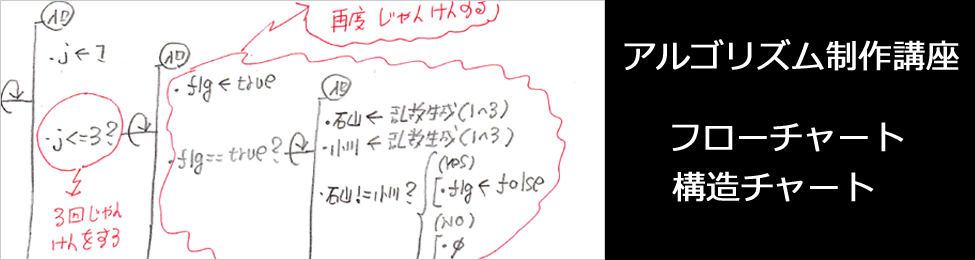 入口
・j←1
・j<=3?
3回じゃん
けんをする
再度じゃんけんする
入口
・flg←true
・flg==true?
入口
・石山←乱数生成(1~3)
・小川←乱数生成(1~3)
・石山!=小川?
(YES)
・flg←false
(NO)
・φ
アルゴリズム制作講座
フローチャート
構造チャート